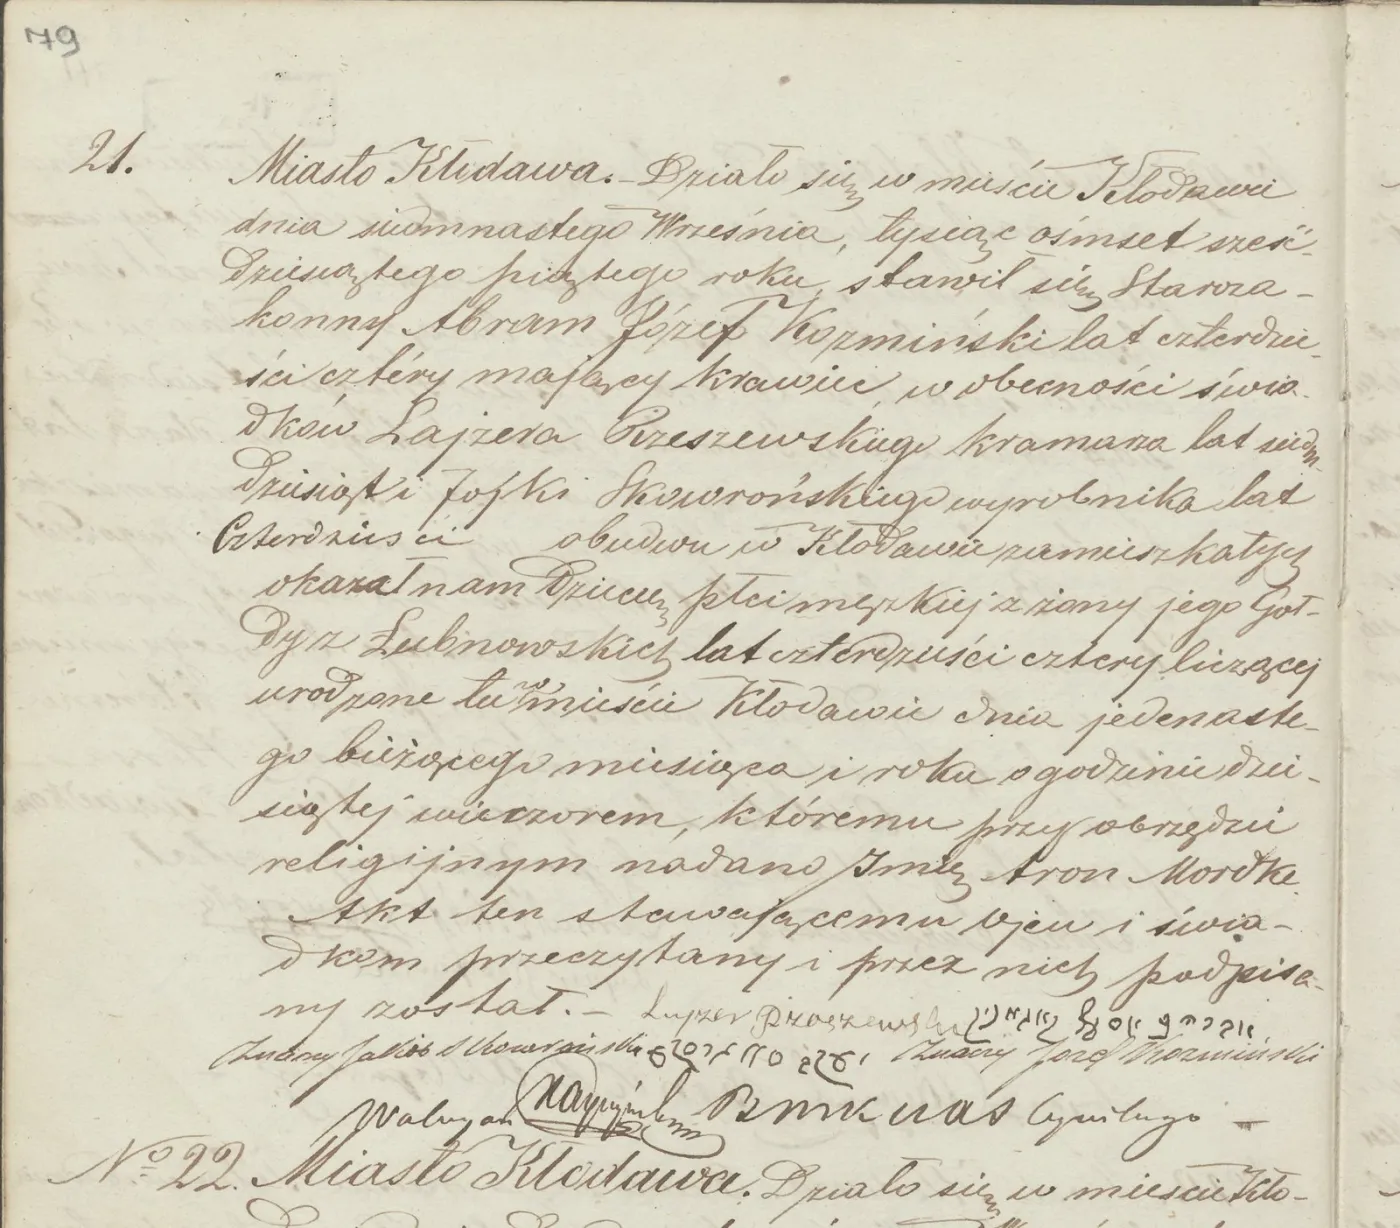 79
21. Miasto Kłodawa. – Działo się w mieście Kłodawie
dnia siedmnastego Września, tysiąc ośmset sześć-
dziesiątego piątego roku, stawił się Staroza-
konny Abram Józef Kozmiński lat czterdzie-
ści cztéry mający krawiec, w obecności świa-
dków Lajzera Rzeszewskiego kramarza lat siedm-
dziesiąt i Jojki Skowrońskiego wyrobnika lat
Czterdzieści obudwu w Kłodawie zamieszkałych
okazał nam Dziecię płci męzkiej z żony jego Goł-
dy z Łubnowskich lat czterdzieści cztery liczącej
urodzone tu w mieście Kłodawie dnia jedenaste-
go bieżącego miesiąca i roku o godzinie dzie-
siątej wieczorem, któremu przy obrzędzie
religijnym nadano Imię Aron Mordke.
Akt ten stawającemu ojcu i świa-
dkom przeczytany i przez nich podpisa-
ny został. –
Znany Jakób Skowroński Znany Józef Kozmiński
Cywilnego –
No 22. Miasto Kłodawa. Działo się w mieście Kło-